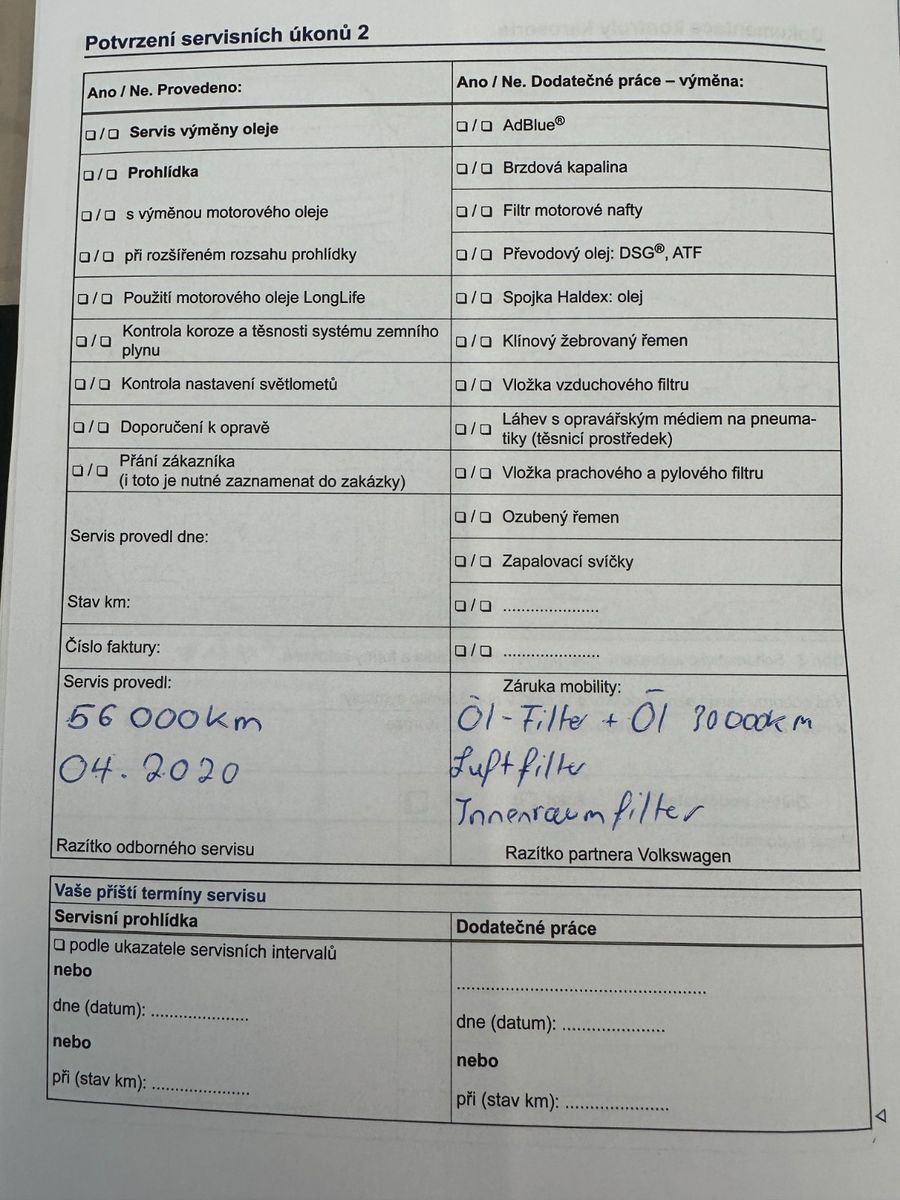 Potvrzení servisních úkonů 2
Ano / Ne. Provedeno:
❏ / ❏ Servis výměny oleje
❏ / ❏ Prohlídka
❏ / ❏ s výměnou motorového oleje
❏ / ❏ při rozšířeném rozsahu prohlídky
❏ / ❏ Použití motorového oleje LongLife
❏ / ❏ Kontrola koroze a těsnosti systému zemního
plynu
❏ / ❏ Kontrola nastavení světlometů
❏ / ❏ Doporučení k opravě
❏ / ❏ Přání zákazníka
(i toto je nutné zaznamenat do zakázky)
Servis provedl dne:
Stav km:
Číslo faktury:
Servis provedl:
56 000km
04.2020
Razítko odborného servisu
Ano / Ne. Dodatečné práce – výměna:
❏ / ❏ AdBlue®
❏ / ❏ Brzdová kapalina
❏ / ❏ Filtr motorové nafty
❏ / ❏ Převodový olej: DSG®, ATF
❏ / ❏ Spojka Haldex: olej
❏ / ❏ Klínový žebrovaný řemen
❏ / ❏ Vložka vzduchového filtru
❏ / ❏ Láhev s opravářským médiem na pneuma-
tiky (těsnicí prostředek)
❏ / ❏ Vložka prachového a pylového filtru
❏ / ❏ Ozubený řemen
❏ / ❏ Zapalovací svíčky
❏ / ❏ .....................
❏ / ❏ .....................
Záruka mobility:
Öl-Filter + Öl 30000km
Luftfilter
Innenraumfilter
Razítko partnera Volkswagen
Vaše příští termíny servisu
Servisní prohlídka
❏ podle ukazatele servisních intervalů
nebo
dne (datum): .....................
nebo
při (stav km): .....................
Dodatečné práce
.......................................................
dne (datum): ......................
nebo
při (stav km): ......................